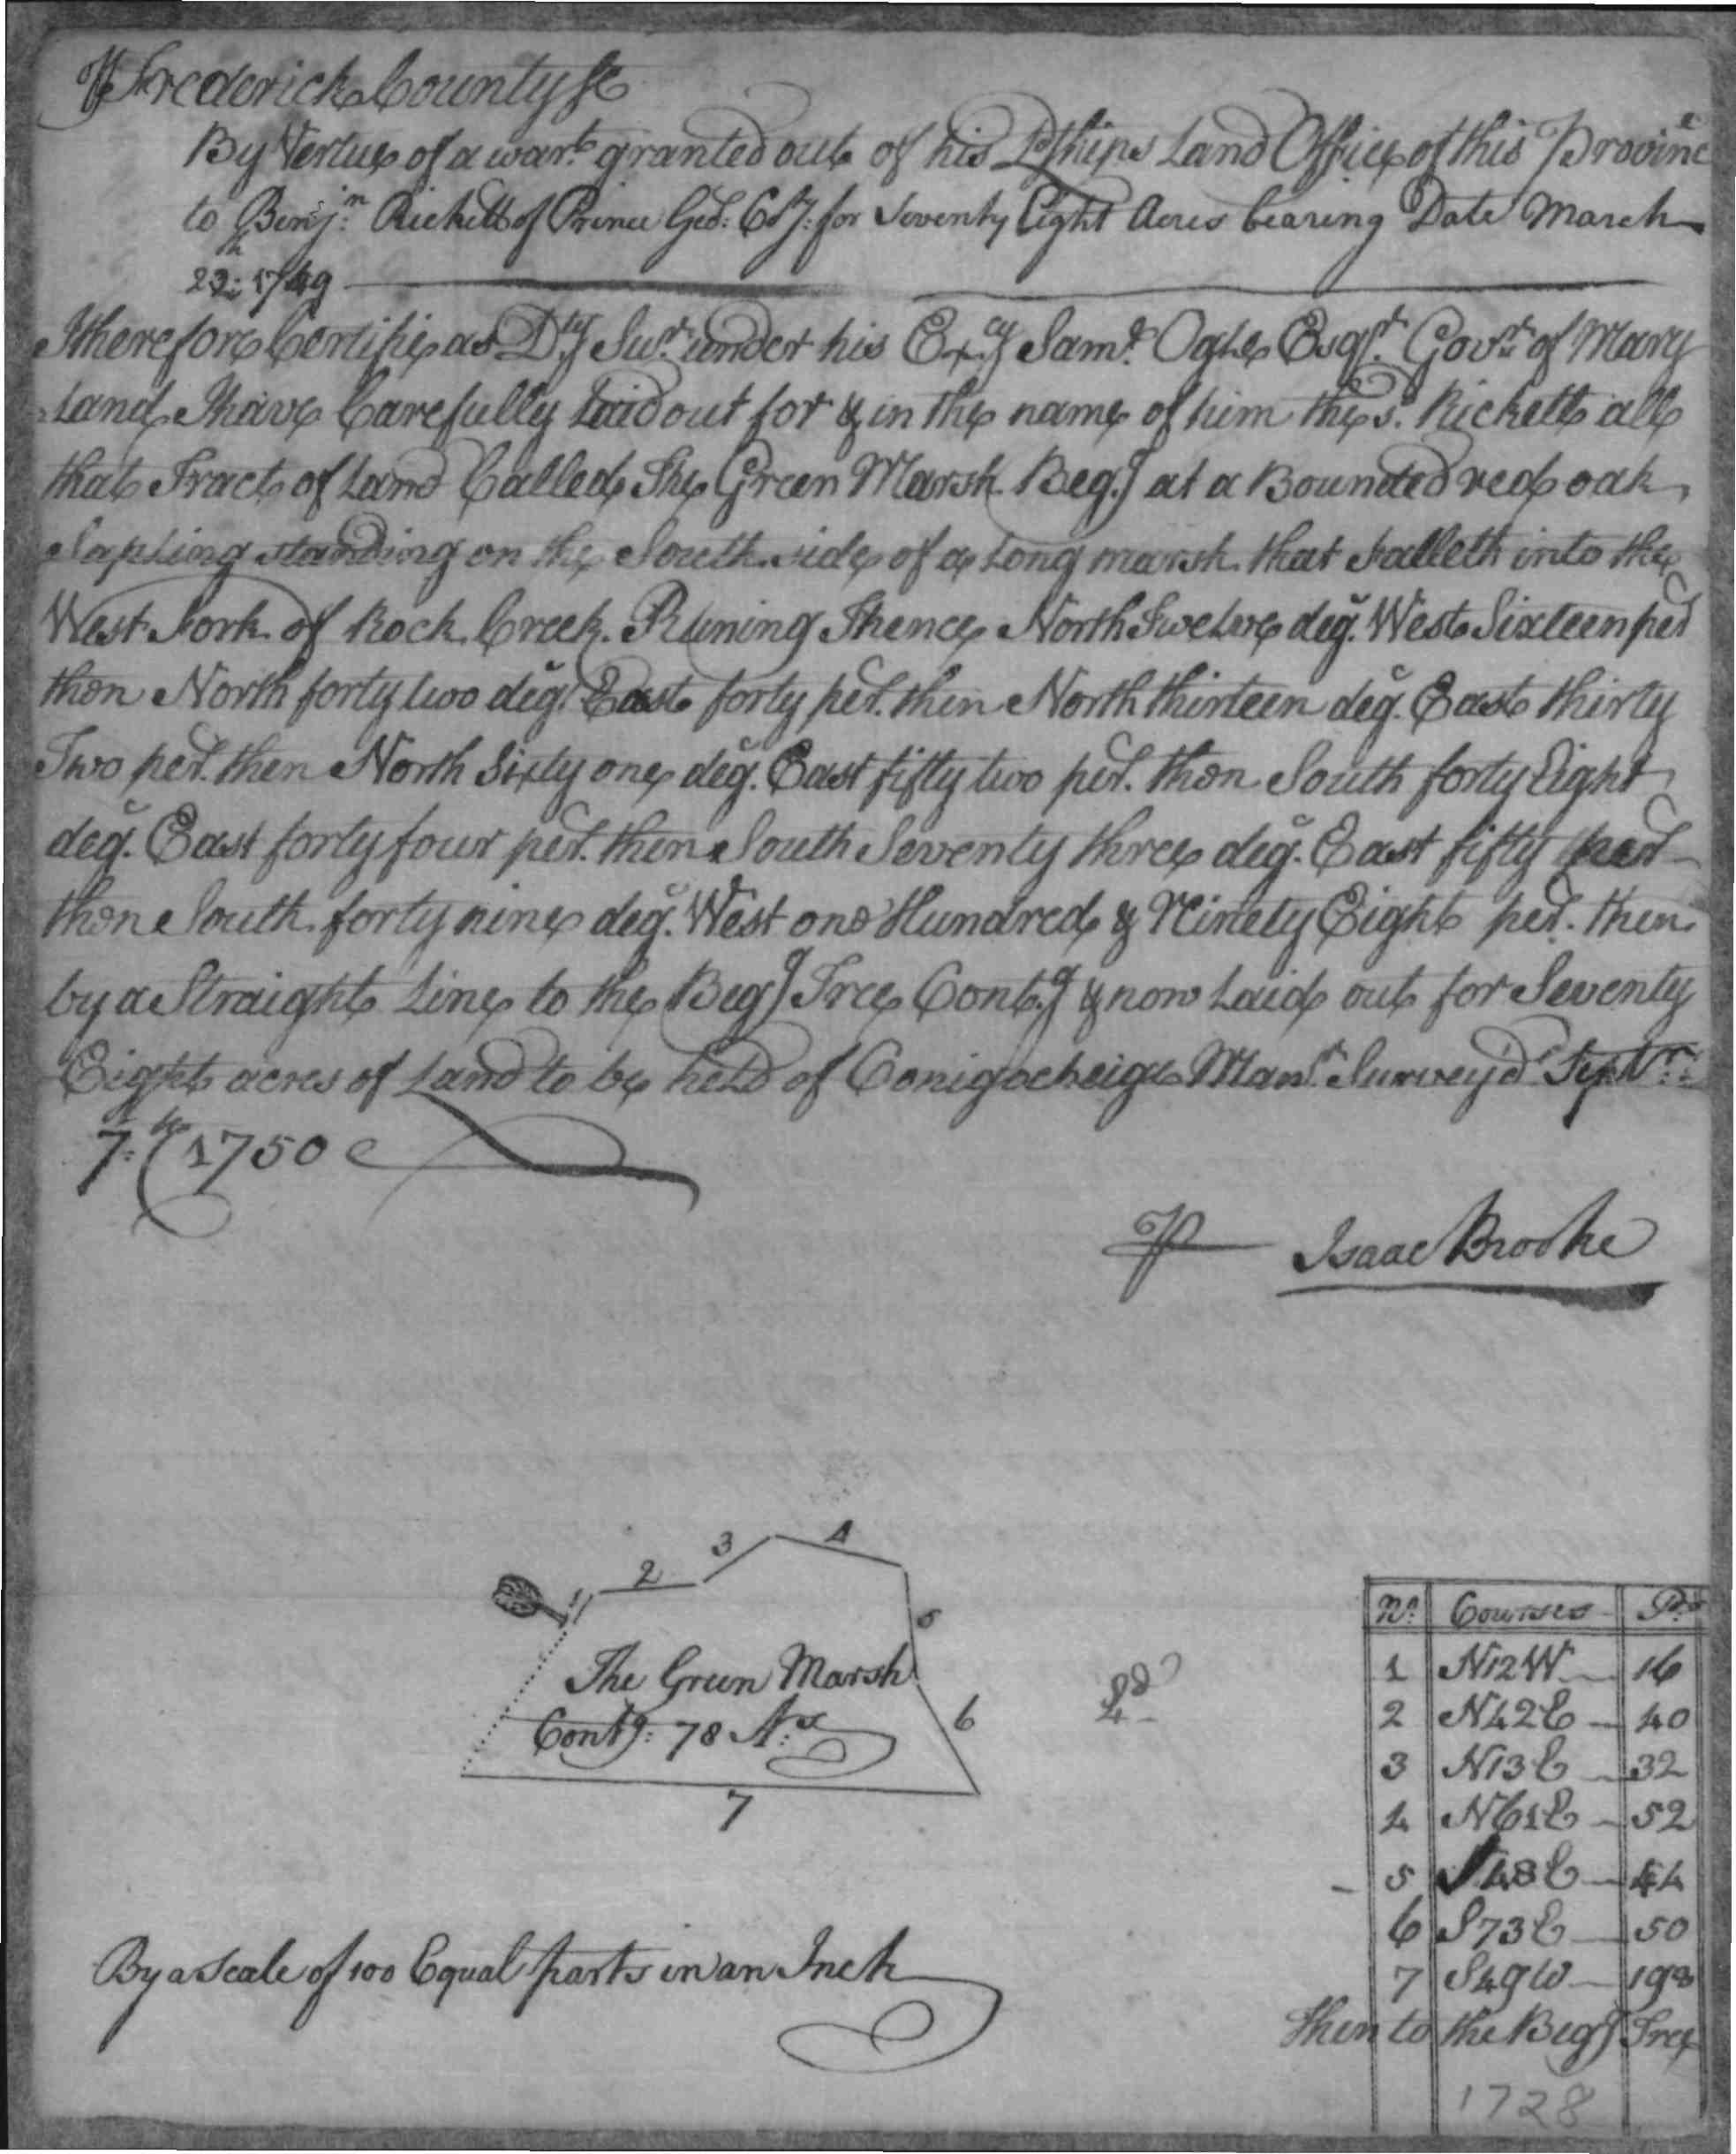 Frederick County ss
By Vertue of a wart. granted out of his Ldships Land Office of this Province
to Benjn. Rickett of Prince Geo: Cty: for Seventy Eight Acres bearing Date March
22: 1749
I therefore Certifie as Dty Surr. under his Excy Saml. Ogle Esqr. Govr. of Mary
Land I have Carefully Laid out for & in the name of him the sd. Rickett all
that Tract of Land Called The Green Marsh Beg.g at a Bounded red oak
Sapling standing on the South side of a Long marsh that falleth into the
West fork of Rock Creek. Runing Thence North Twelve deg. West Sixteen per
then North forty two deg. East forty per. then North thirteen deg. East thirty
Two per. then North Sixty one deg. East fifty two per. then South forty Eight
deg. East forty four per. then South Seventy three deg. East fifty per
then South forty nine deg. West one Hundred & Ninety Eight per. then
by a Straight Line to the Beg.g Tree Cont.g & now Laid out for Seventy
Eight acres of Land to be held of Conigocheige Manr. Survey'd Septr.
7th 1750
P Isaac Brooke
1
2
3
4
5
6
7
The Green Marsh
Contg: 78 As
No. Courses Ps
1 N12W 16
2 N42E 40
3 N13E 32
4 N61E 52
5 S48E 44
6 S73E 50
7 S49W 198
Then to the Beg.g Tree
1728
By a Scale of 100 Equal parts in an Inch